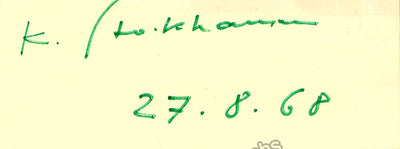 K. Stockhausen
27.8.68